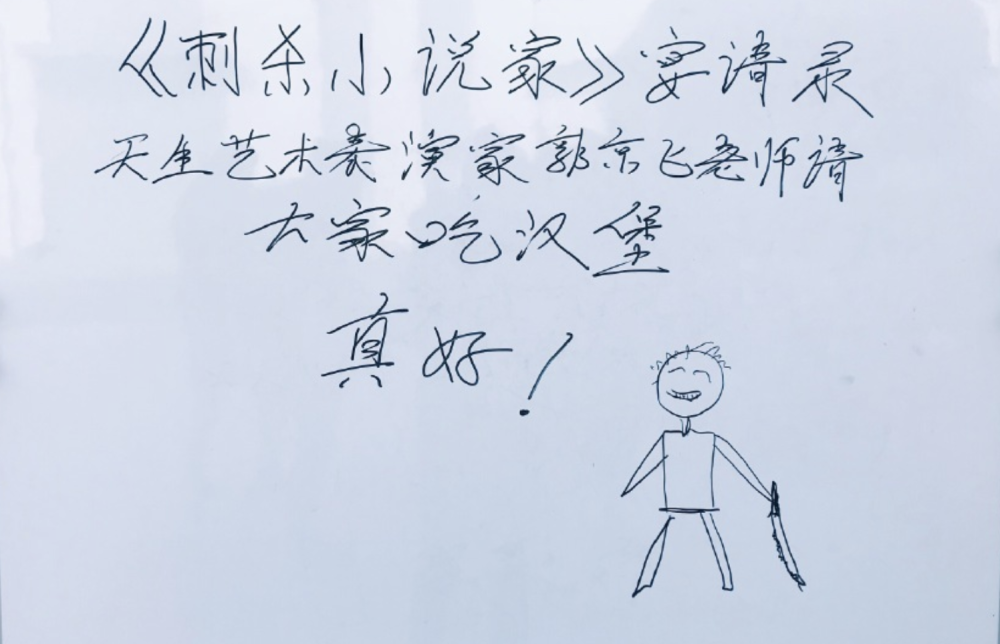 《刺杀小说家》宴请录
天生艺术表演家郭京飞老师请
大家吃汉堡
真好！